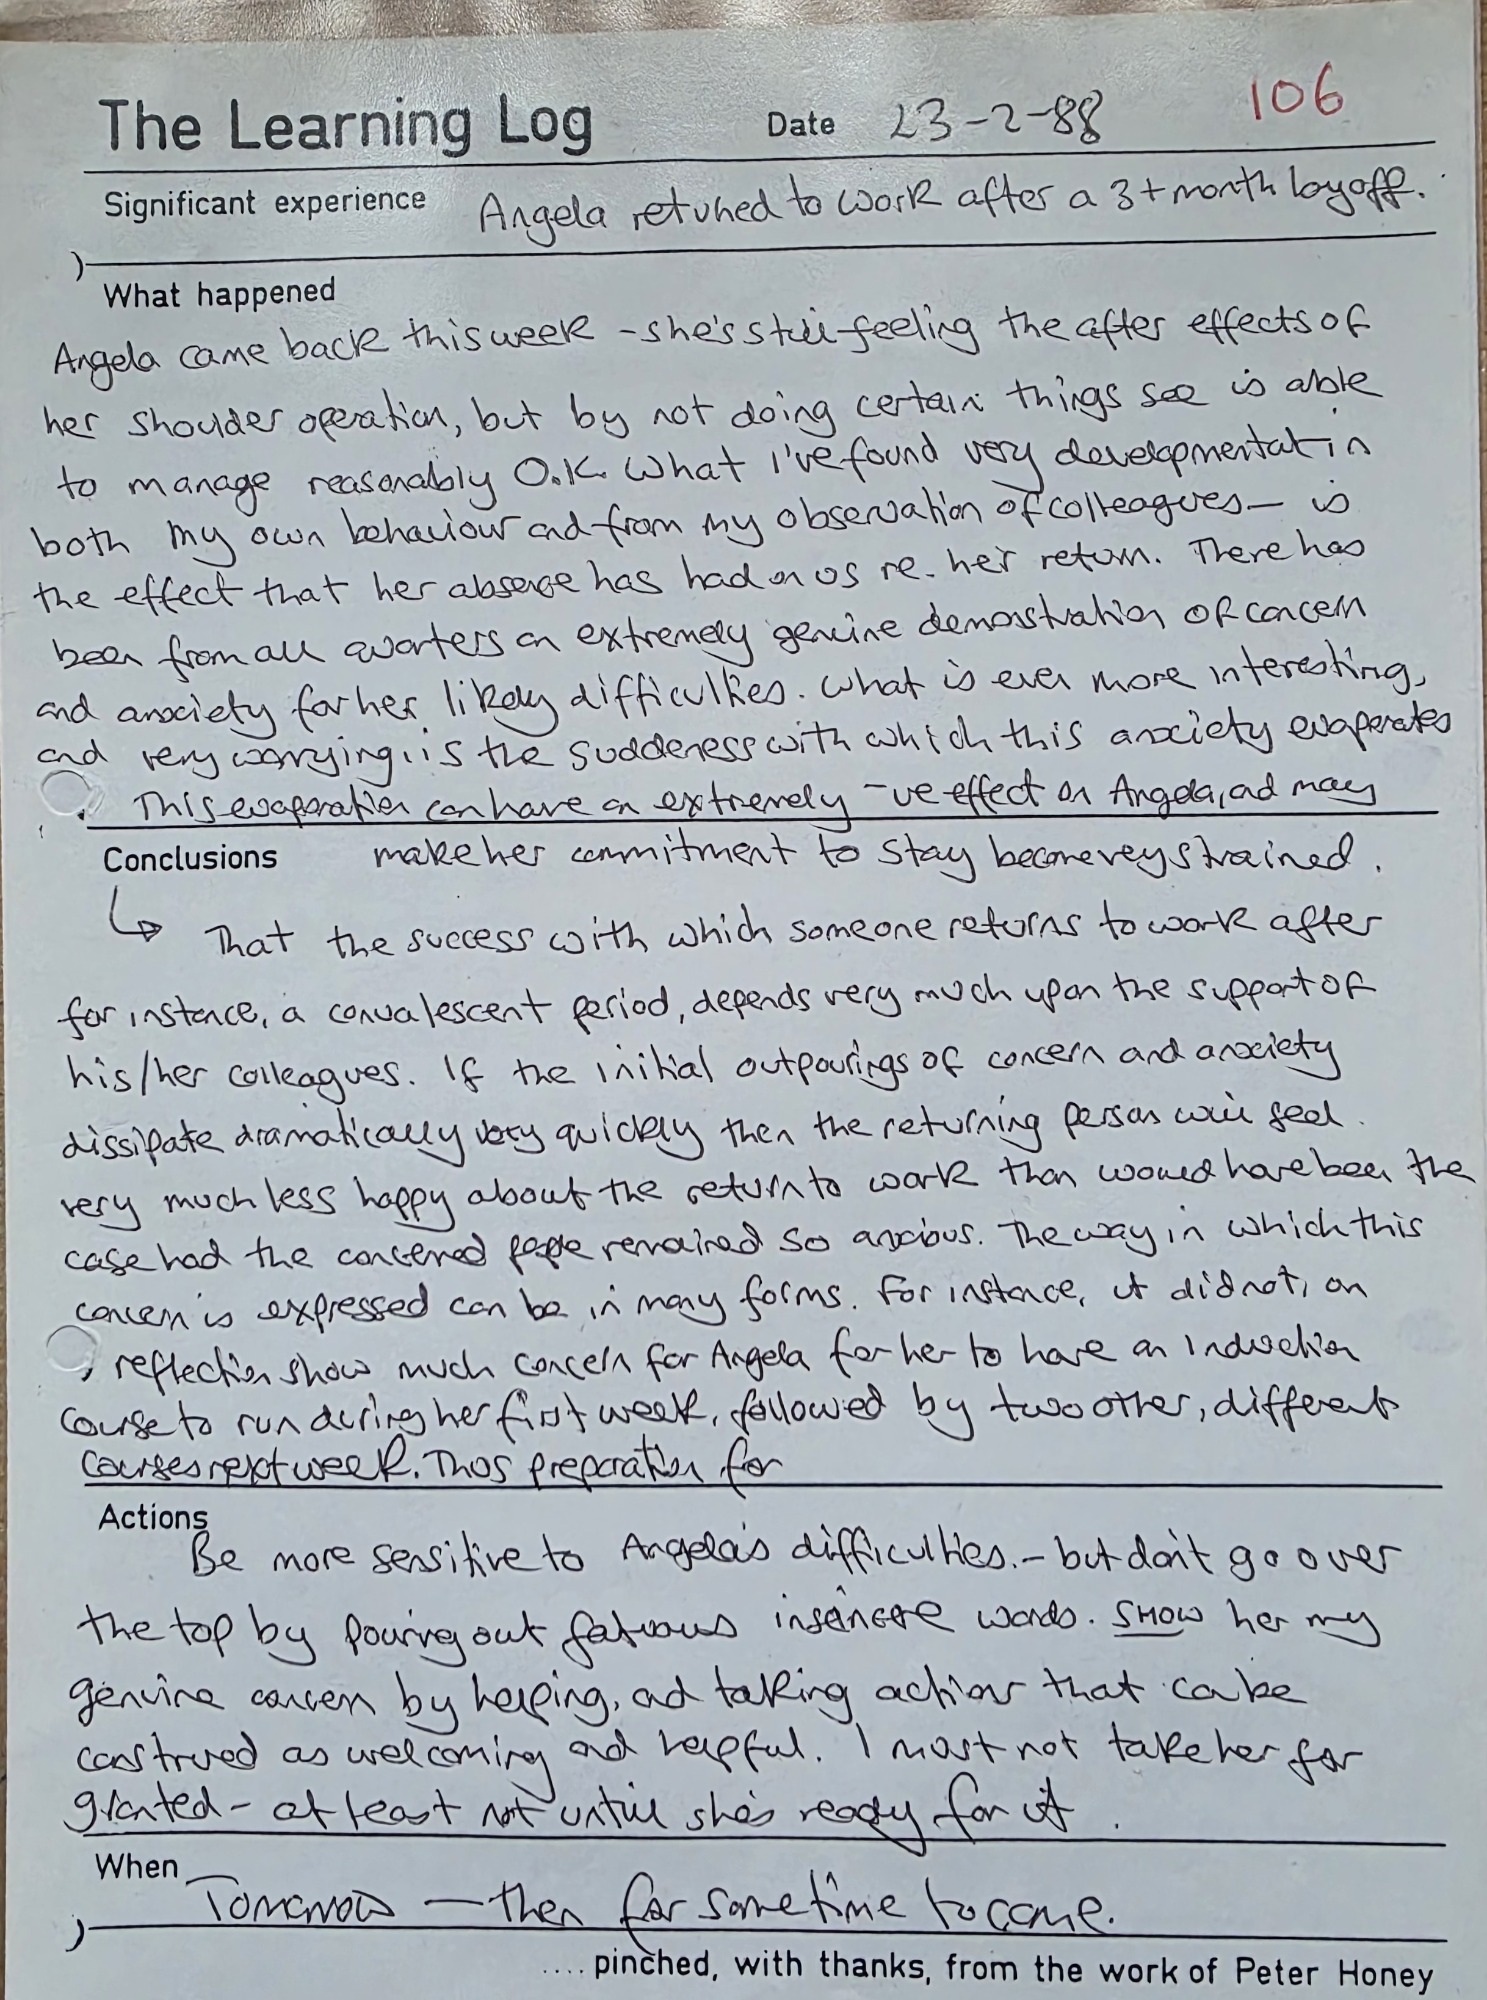 The Learning Log Date 23-2-88 106
Significant experience Angela retuned to work after a 3+month layoff.
What happened
Angela came back this week - she's still feeling the after effects of
her shoulder operation, but by not doing certain things see is able
to manage reasonably O.K. What I've found very developmental in
both my own behaviour and from my observation of colleagues - is
the effect that her absence has had on us re. her return. There has
been from all quarters an extremely genuine demonstration of concern
and anxiety for her likely difficulties. What is even more interesting,
and very worrying, is the suddeness with which this anxiety evaporates
. This evaporation can have an extremely -ve effect on Angela, and may
Conclusions make her commitment to stay become very strained.
↳ That the success with which someone returns to work after
for instance, a convalescent period, depends very much upon the support of
his/her colleagues. If the initial outpourings of concern and anxiety
dissipate dramatically very quickly then the returning person will feel
very much less happy about the return to work than would have been the
case had the concerned people remained so anxious. The way in which this
concern is expressed can be in many forms. For instance, it did not, on
reflection show much concern for Angela for her to have an Induction
course to run during her first week, followed by two other, different
courses next week. Thus preparation for
Actions
Be more sensitive to Angela's difficulties. - but don't go over
the top by pouring out fatuous insincere words. SHOW her my
genuine concern by helping, and taking actions that can be
construed as welcoming and helpful. I must not take her for
granted - at least not until she's ready for it.
When
Tomorrow - then for some time to come.
.... pinched, with thanks, from the work of Peter Honey